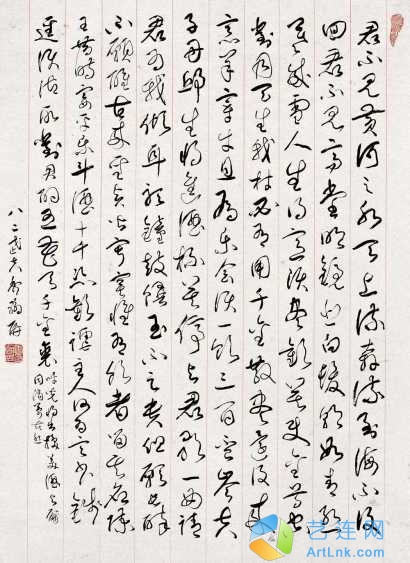 君不見黃河之水天上來奔流到海不復
回君不見高堂明鏡悲白髮朝如青絲
暮成雪人生得意須盡歡莫使金樽空
對月天生我材必有用千金散盡還復來
烹羊宰牛且為樂會須一飲三百杯岑夫
子丹邱生將進酒杯莫停與君歌一曲請
君為我傾耳聽鐘鼓饌玉不足貴但願長醉
不願醒古來聖賢皆寂寞惟有飲者留其名陳
王昔時宴平樂斗酒十千恣歡謔主人何為言少錢
逕須沽取對君酌五花馬千金裘
呼兒將出換美酒與爾
同銷萬古愁
八二
艺连网
ArtLnk.com